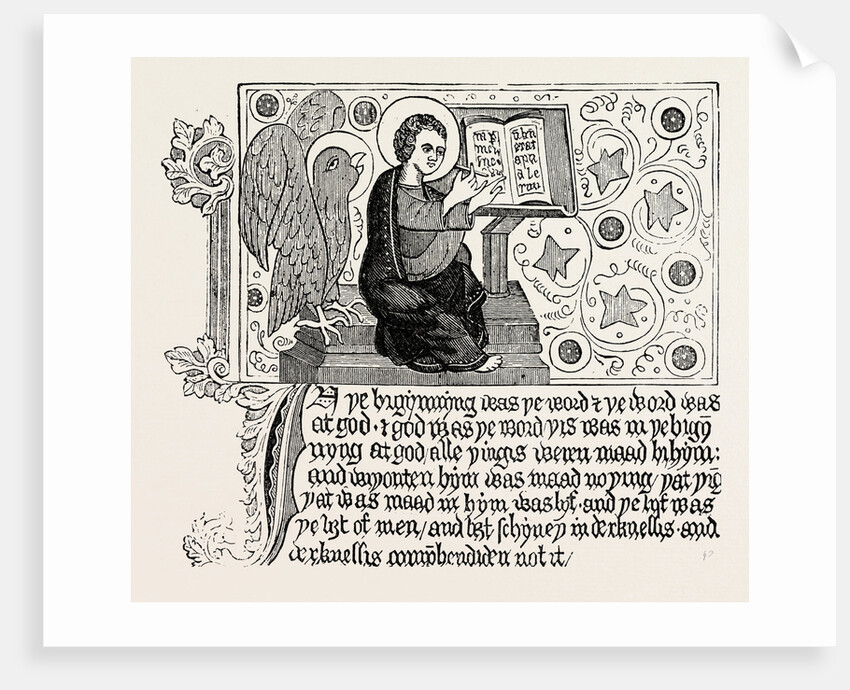 In ye bigynnyng was ye word & ye word was
at god · & god was ye word yis was in ye bigyn̄
nyng at god / alle yingis weren maad bi hym:
and wyouten hym was maad no ying / yat yīg
yat was maad in hym was lyf · and ye lyf was
ye lyt of men / and lyt schyney in derknessis · and
derknessis comp̄hendiden not it /